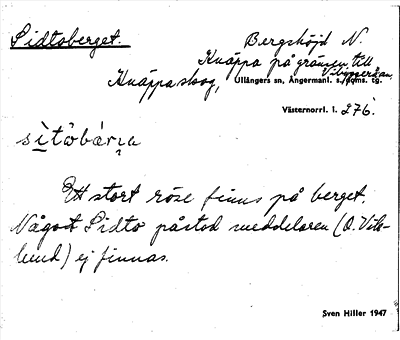 Sidtoberget. Bergshöjd N.
Knäppa på gränsen till
Knäppa skog,
Ullångers sn, Ångermanl. s. doms. tg.
Västernorrl. l. 276.
sìtòbárıa
Ett stort röse finns på berget.
Något Sidto påstod meddelaren (O. Vik-
lund) ej finnas.
Sven Hiller 1947